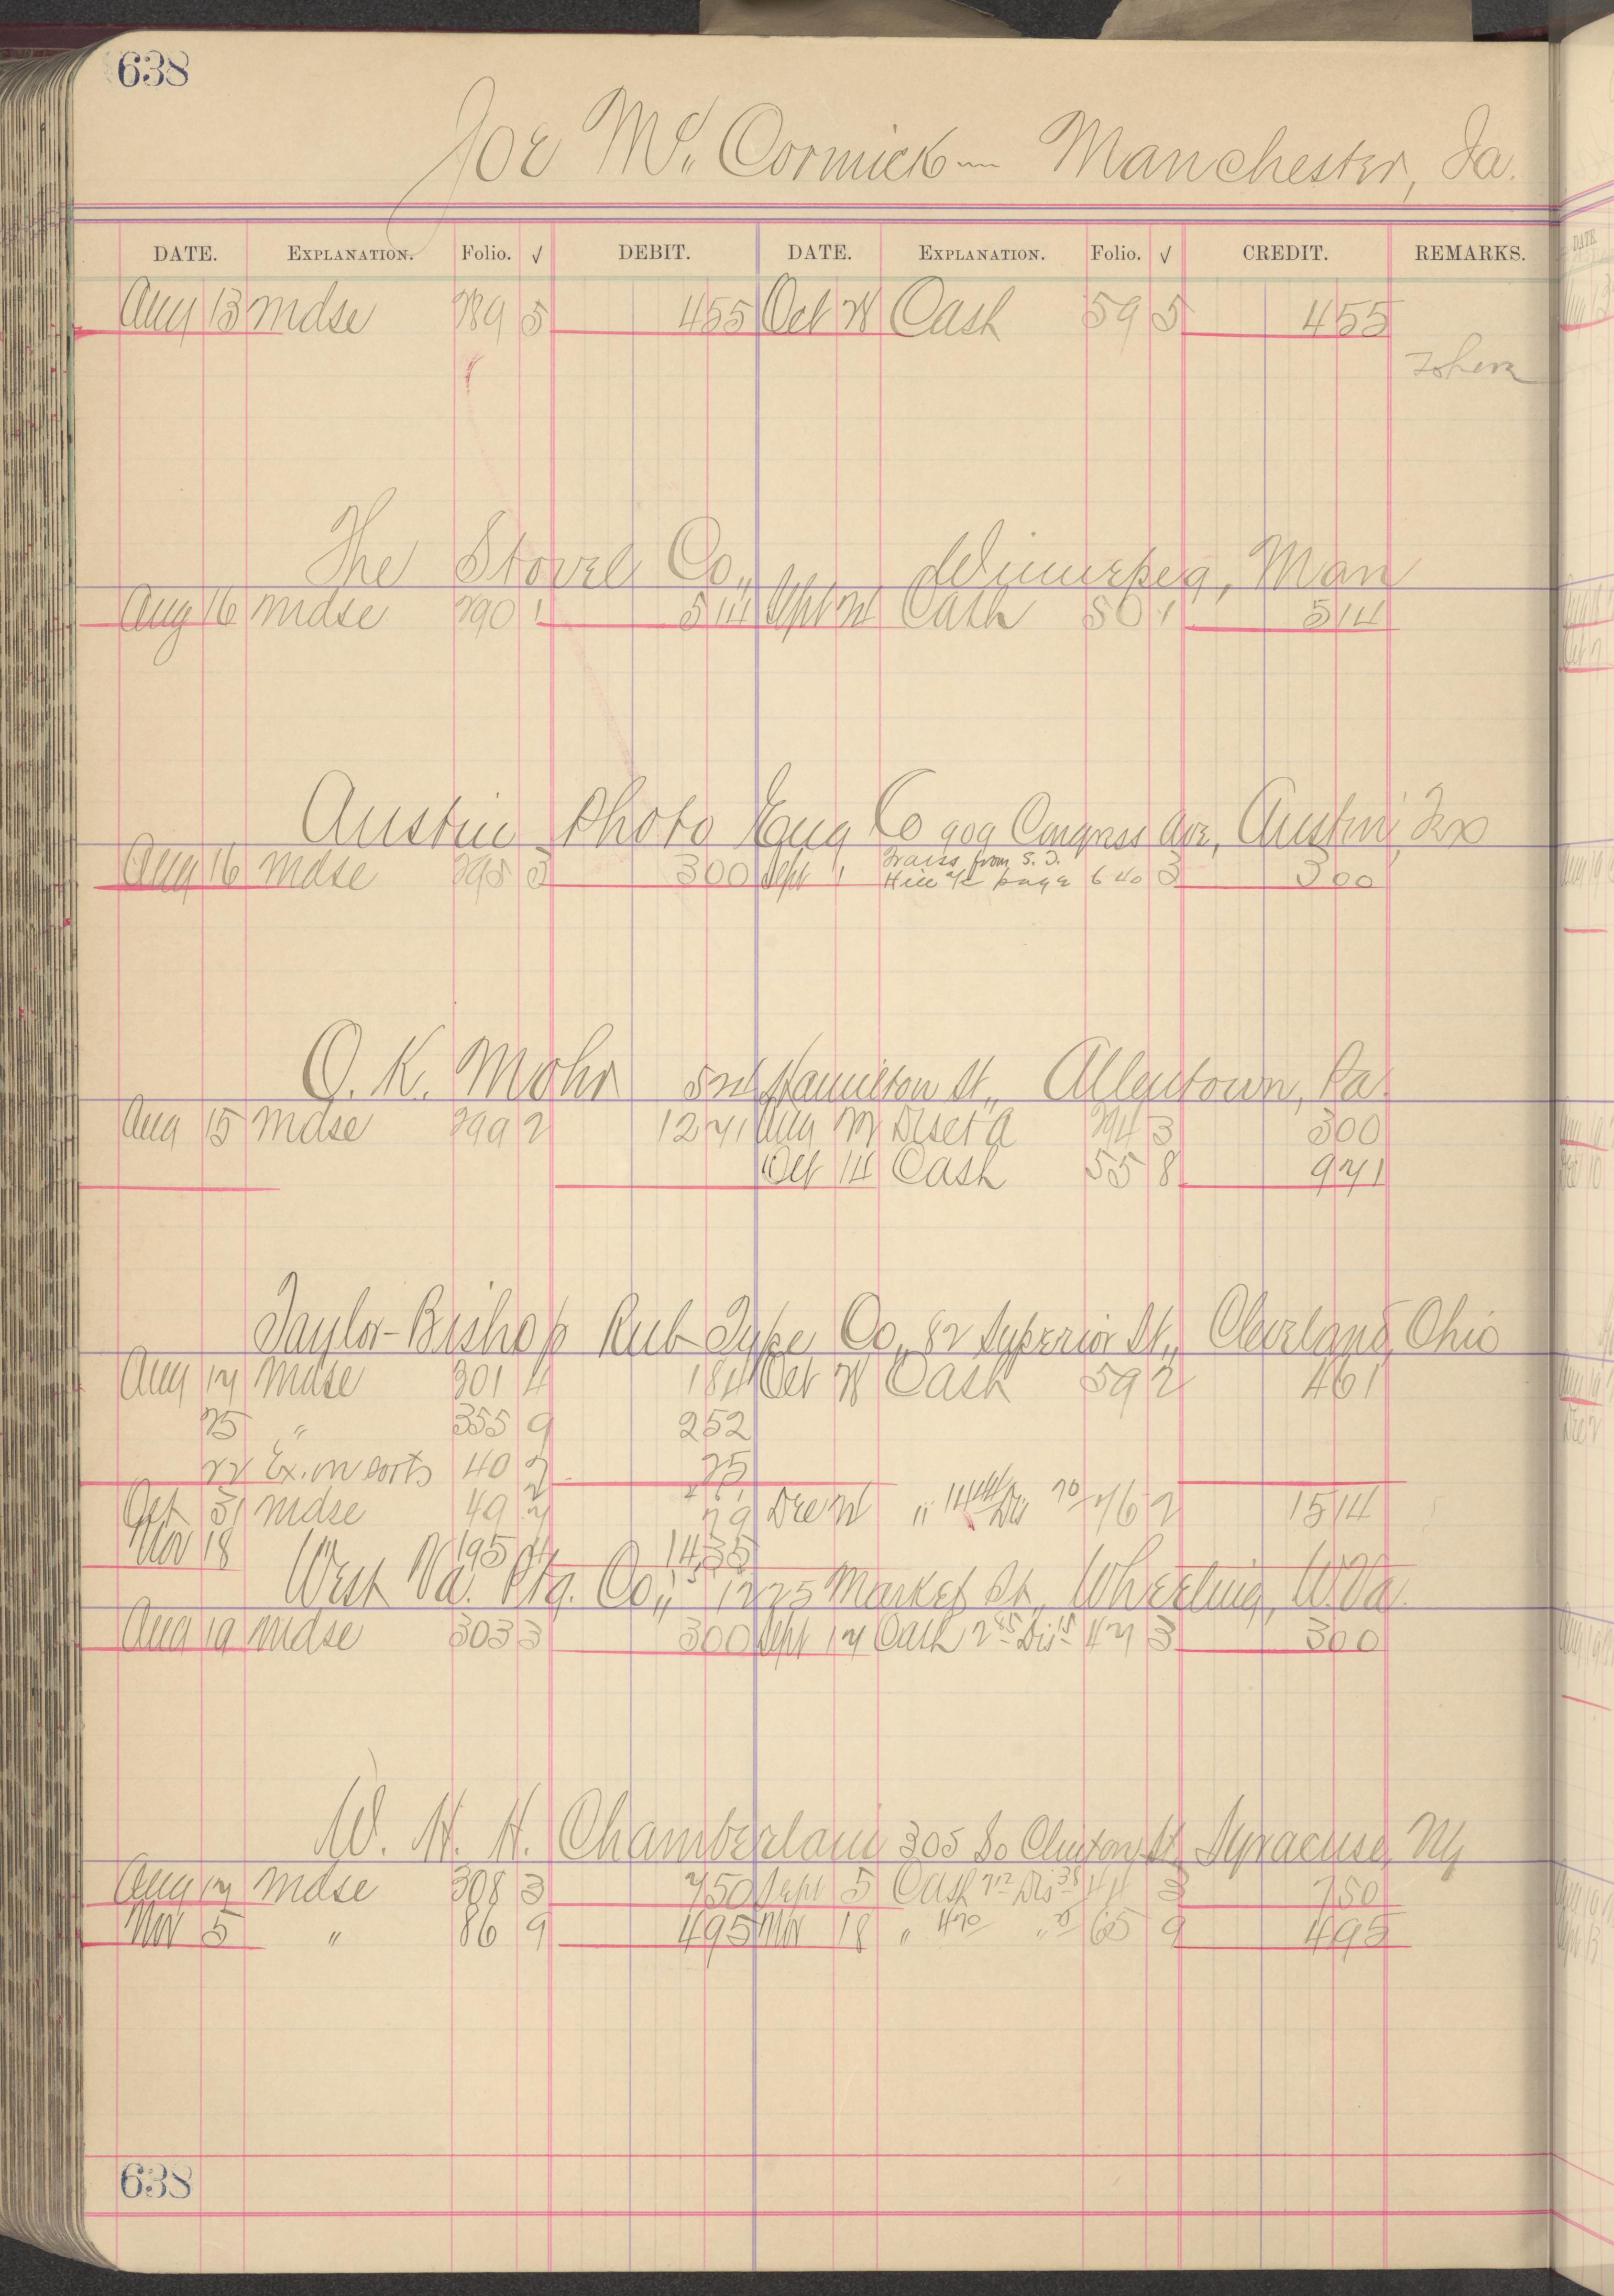 638
Joe Mc. Cormick — Manchester, Ia.
DATE. EXPLANATION. Folio. √ DEBIT. DATE. EXPLANATION. Folio. √ CREDIT. REMARKS.
Aug 13 mdse 289 5 455 Oct 28 Cash 59 5 455
The Stovel Co., Winnipeg, Man
Aug 16 mdse 290 1 514 Sept Cash 50 1 514
Austin Photo Eng Co 909 Congress Ave, Austin, Tex
Aug 16 mdse 295 3 300 Sept 1 Trans from S. J.
Hill a/c page 640 3 300
O. K. Mohr Hamilton St., Allentown, Pa.
Aug 15 mdse 299 2 1271 Aug 294 3 300
Oct 14 Cash 55 8 971
Taylor-Bishop Rub Type Co., 82 Superior St., Cleveland, Ohio
Aug 17 mdse 301 4 184 Oct 28 Cash 59 2 461
25 " 355 9 252
22 Ex. on sorts 40 2 25
Oct 31 mdse 49 7 79 Dec " 76 2 1514
Nov 18 195 4 1435
West Va. Ptg. Co., 1225 Market St., Wheeling, W. Va.
Aug 19 mdse 303 3 300 Sept 17 Cash 285 Dis 15 47 3 300
W. H. H. Chamberlain 305 So Clinton St, Syracuse, NY
Aug 17 mdse 308 3 750 Sept 5 Cash 712 Dis 38 44 3 750
Nov 5 " 86 9 495 Nov 18 " 470 " 25 65 9 495
638